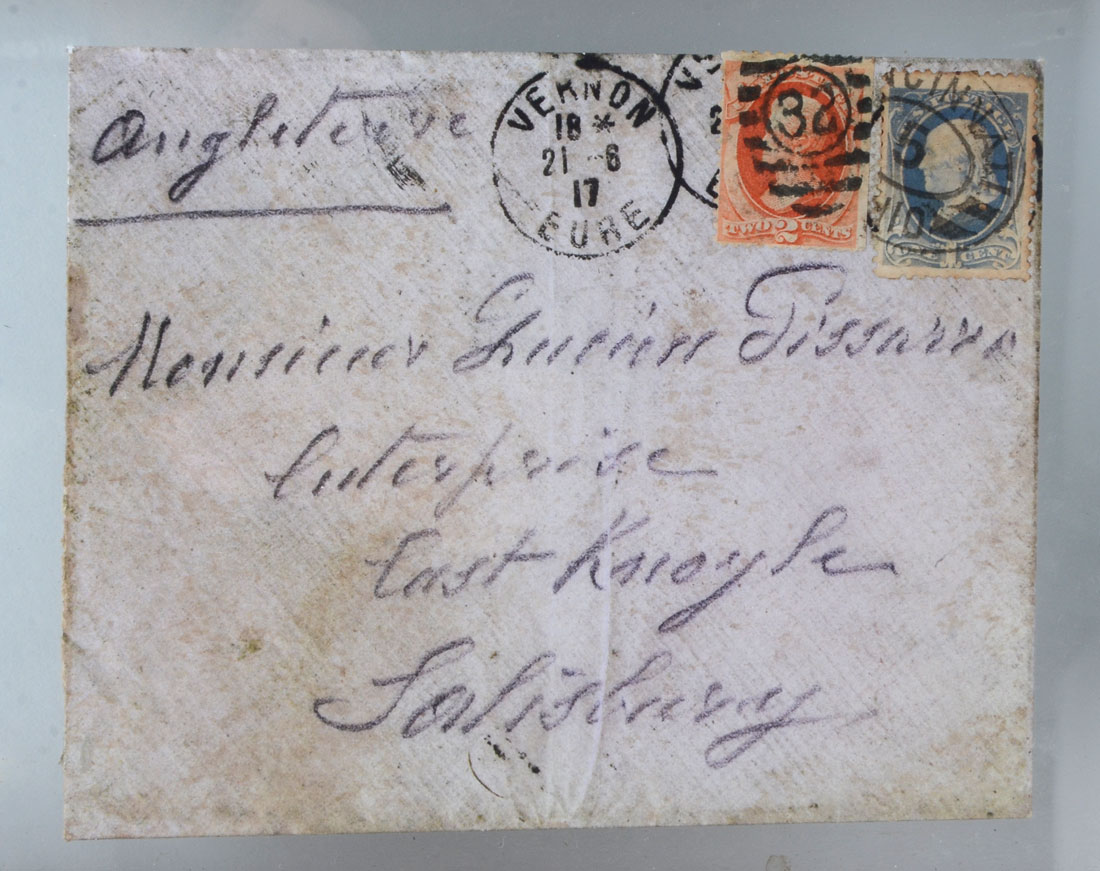 Angleterre
VERNON
18 *
21 - 6
17
EURE
V
2
E
32
TWO 2 CENTS
CINNATI
5
1 CENT
Monsieur Lucien Pissarro
Enterprise
East Knoyle
Salisbury